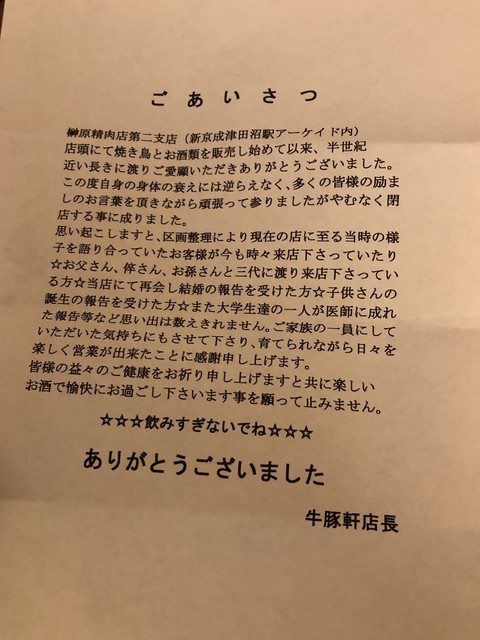 ごあいさつ
榊原精肉店第二支店（新京成津田沼駅アーケイド内）
店頭にて焼き鳥とお酒類を販売し始めて以来、半世紀
近い長きに渡りご愛顧いただきありがとうございました。
この度自身の身体の衰えには逆らえなく、多くの皆様の励ま
しのお言葉を頂きながら頑張って参りましたがやむなく閉
店する事に成りました。
思い起こしますと、区画整理により現在の店に至る当時の様
子を語り合っていたお客様が今も時々来店下さっていたり
☆お父さん、倅さん、お孫さんと三代に渡り来店下さってい
る方☆当店にて再会し結婚の報告を受けた方☆子供さんの
誕生の報告を受けた方☆また大学生達の一人が医師に成れ
た報告等など思い出は数えきれません。ご家族の一員にして
いただいた気持ちにもさせて下さり、育てられながら日々を
楽しく営業が出来たことに感謝申し上げます。
皆様の益々のご健康をお祈り申し上げますと共に楽しい
お酒で愉快にお過ごし下さいます事を願って止みません。
☆☆☆飲みすぎないでね☆☆☆
ありがとうございました
牛豚軒店長